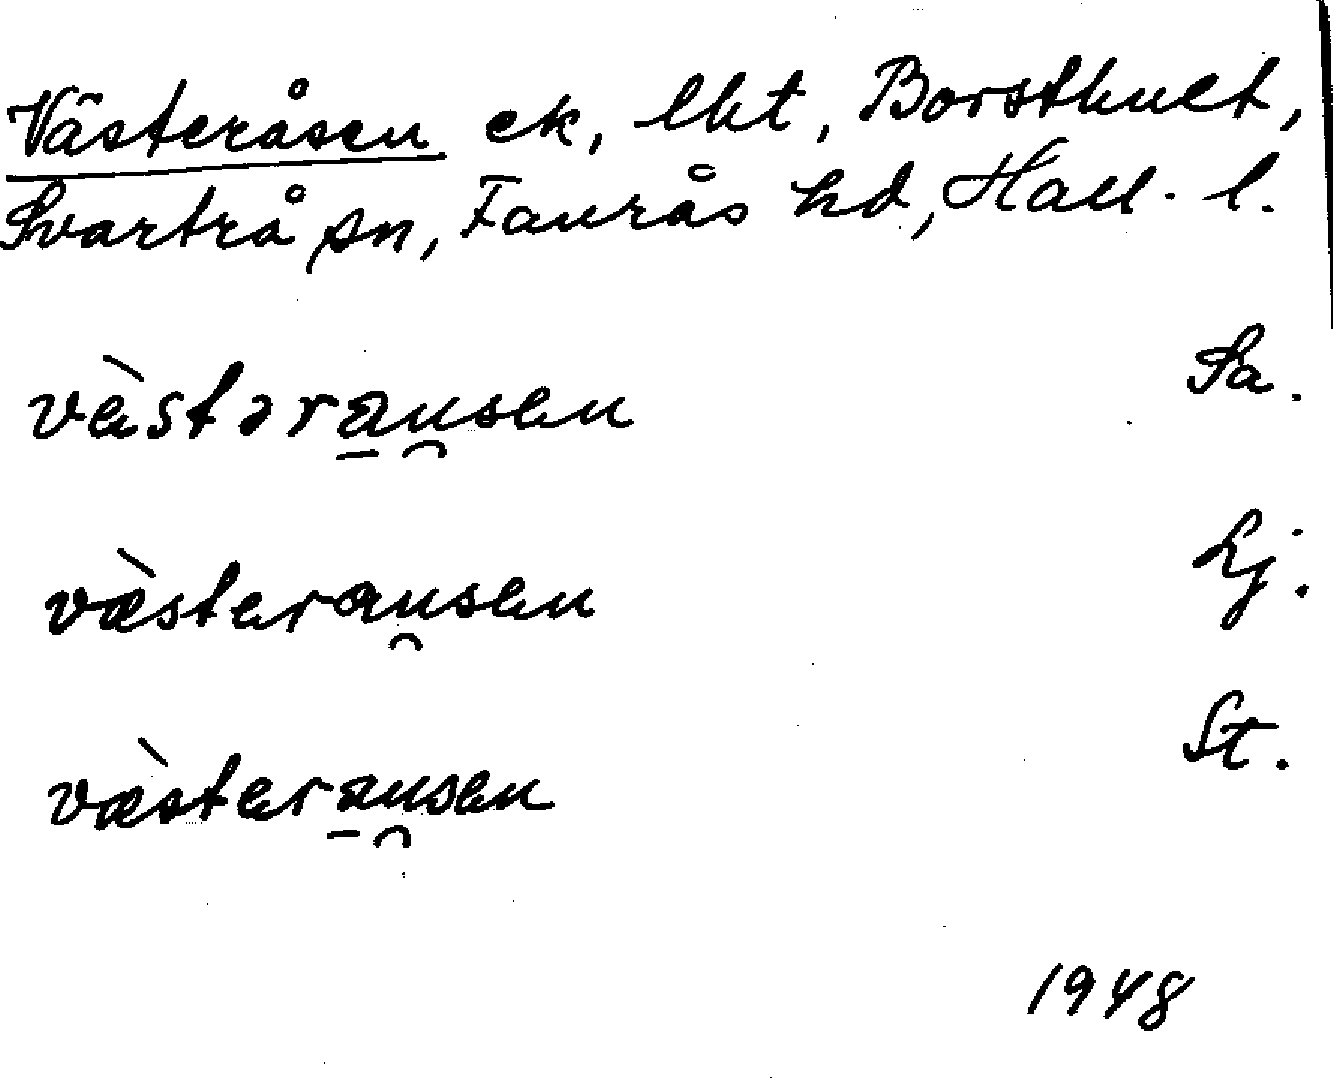 Västeråsen ek, lht, Borsthult,
Svartrå sn, Faurås hd, Hall. l.
vɛ̀stəra̠u̯sen Sa.
væ̀sterau̯sen Lj.
væ̀stera̠u̯sen St.
1948